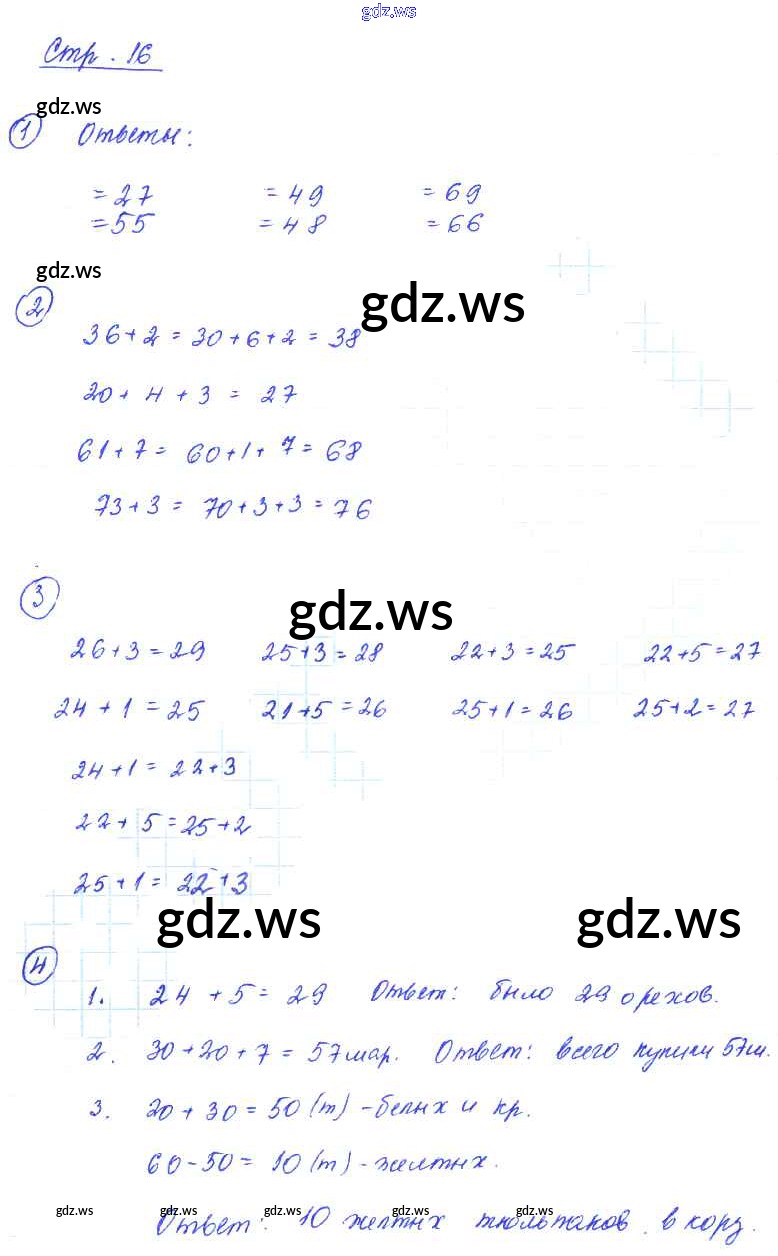 gdz.ws
Стр. 16
gdz.ws
1 Ответы:
= 27 = 49 = 69
= 55 = 48 = 66
gdz.ws
gdz.ws
2
36+2 = 30+6+2 = 38
20 + 4 + 3 = 27
61+7 = 60+1+7 = 68
73+3 = 70+3+3 = 76
3
gdz.ws
26+3=29 25+3=28 22+3=25 22+5=27
24+1=25 21+5=26 25+1=26 25+2=27
24+1= 22+3
22+5=25+2
25+1= 22+3
gdz.ws gdz.ws
4
1. 24+5=29 Ответ: было 29 орехов.
2. 30+20+7=57мар. Ответ: всего купили 57м.
3. 20+30=50(т)-белых и кр.
60-50=10(т)-желтых.
gdz.ws gdz.ws gdz.ws gdz.ws gdz.ws gdz.ws gdz.ws
Ответ: 10 желтых тюльпанов в корз.